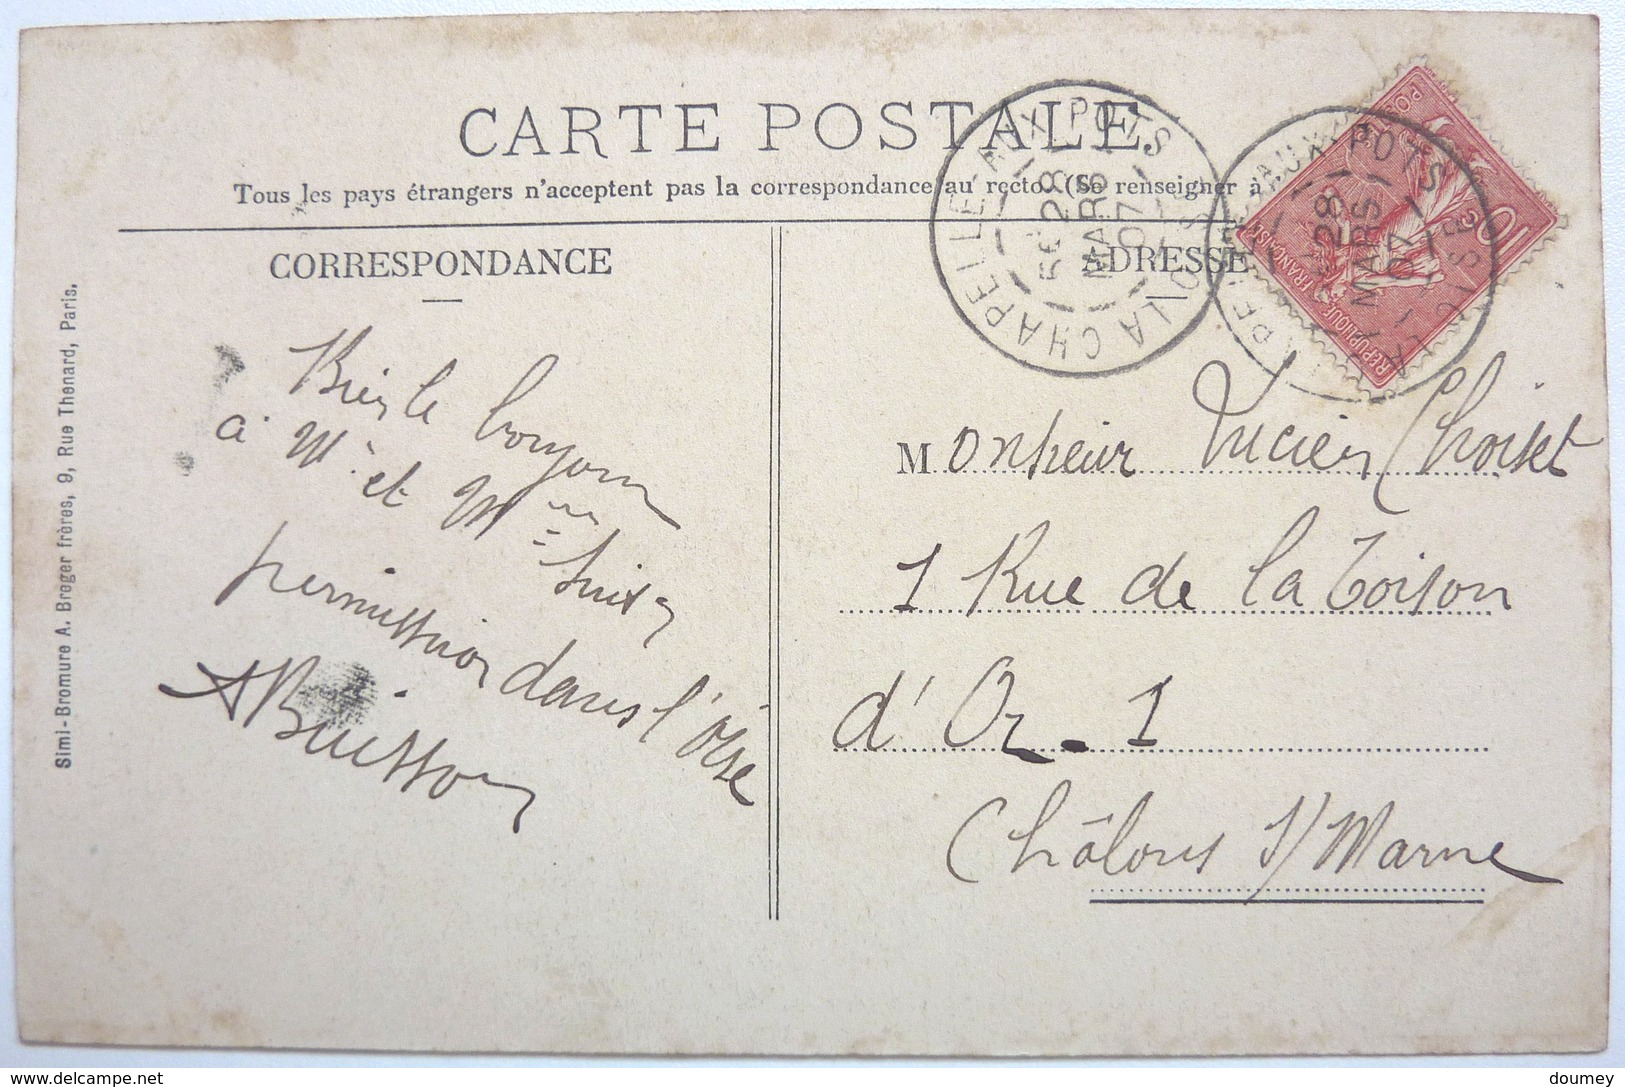 CARTE POSTALE
Tous les pays étrangers n'acceptent pas la correspondance au recto. (Se renseigner à
CORRESPONDANCE
ADRESSE
Simi-Bromure A. Breger frères, 9, Rue Thenard, Paris.
LA CHAPELLE-AUX-POTS
OISE
5E 28
MARS
07
AUX-POTS
OISE
28
MARS
07
10
POSTES
REPUBLIQUE FRANÇAISE
Bien le bonjour
à Mr et Mme
permission dans l'Oise
ABuisson
Monsieur Lucien Choiset
1 Rue de la Toison
d'Or. 1
Châlons s/Marne
doumey